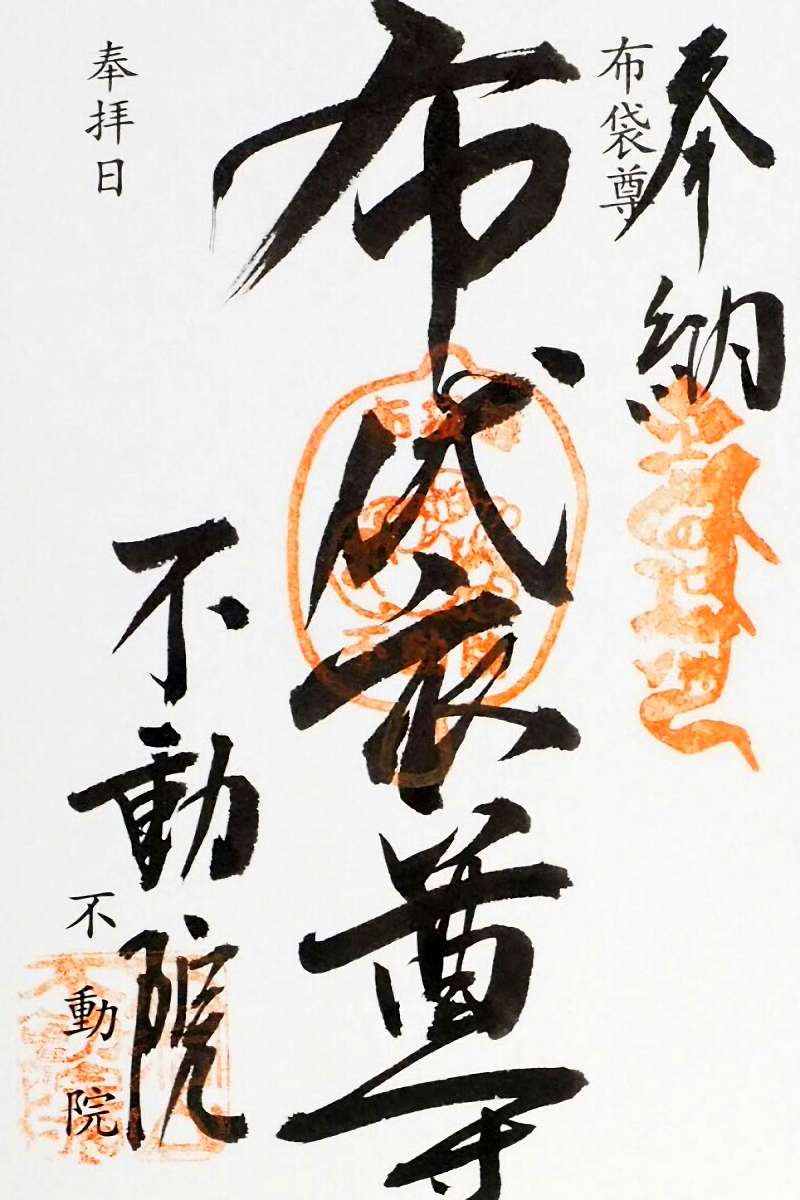 奉納
布袋尊
布袋尊
奉拝日
不動院
不動院